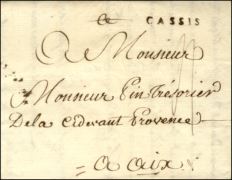 a CASSIS
A Monsieur
Monsieur Pin Trésorier
De la Cidevant Provence
a aix